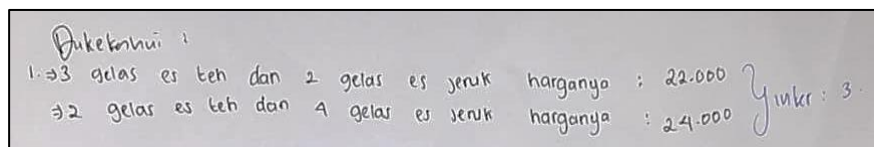 Diketahui :
1. ⇒ 3 gelas es teh dan 2 gelas es jeruk harganya : 22.000
⇒ 2 gelas es teh dan 4 gelas es jeruk harganya : 24.000
: 3.